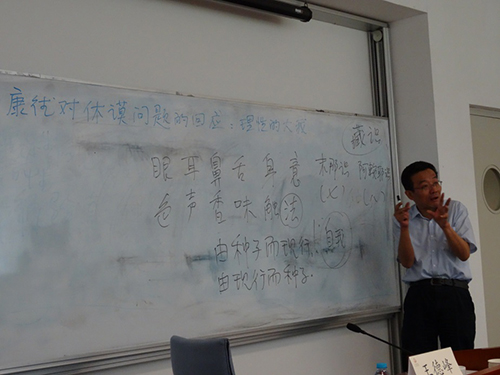 康德对休谟问题的回应：理性的大我
藏识
眼 耳 鼻 舌 身 意 末那识 阿赖耶识
色 声 香 味 触 法
由种子而现行 自我
由现行而种子.
王德峰